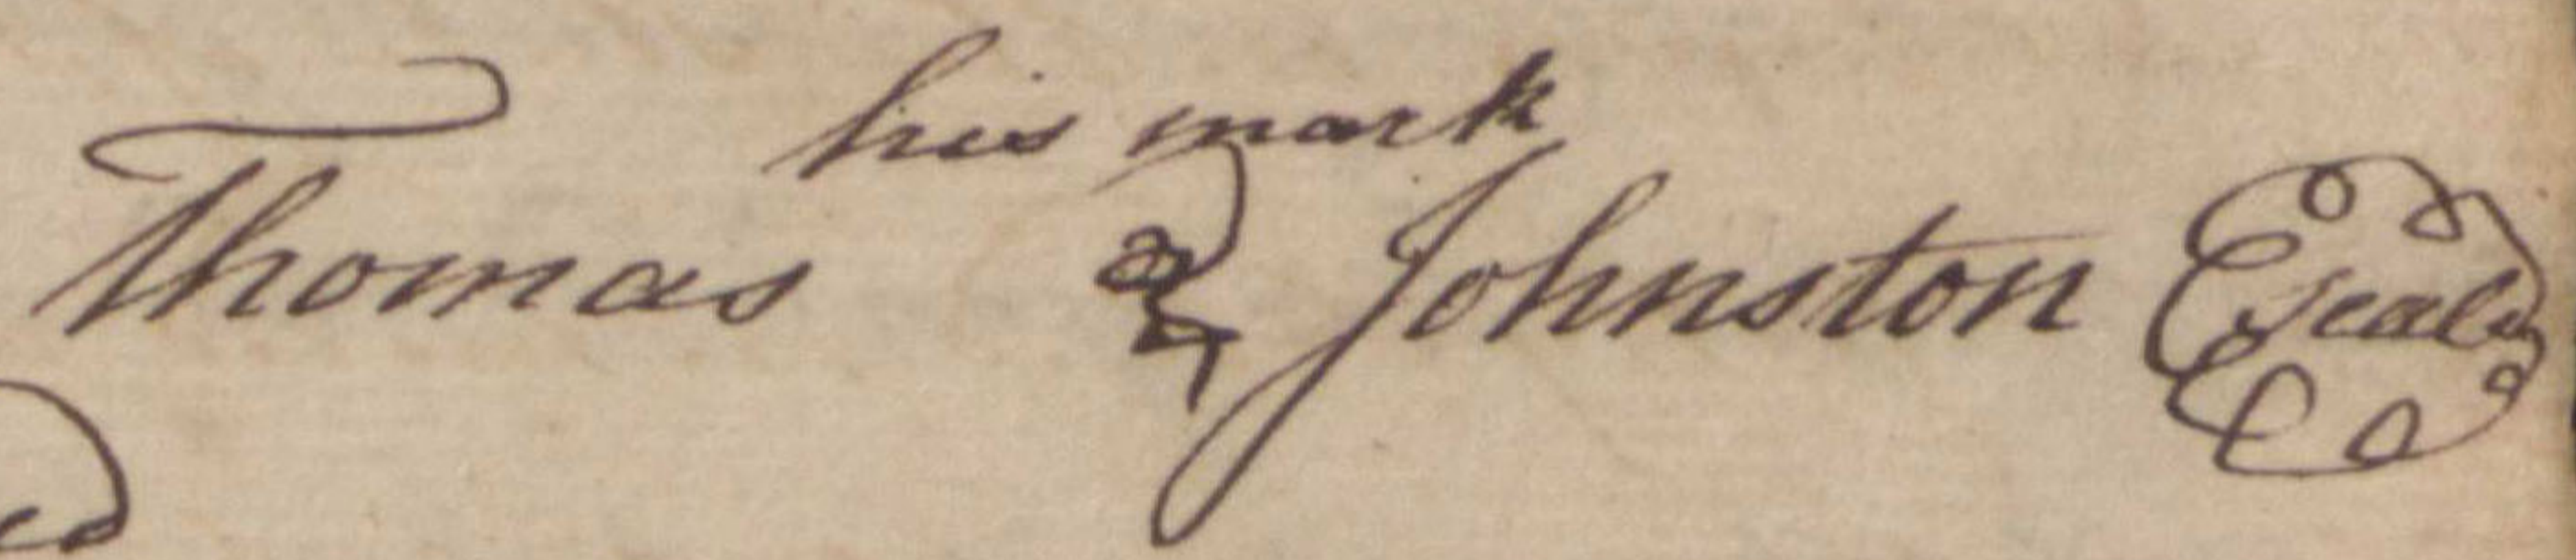 his mark
Thomas Johnston seal